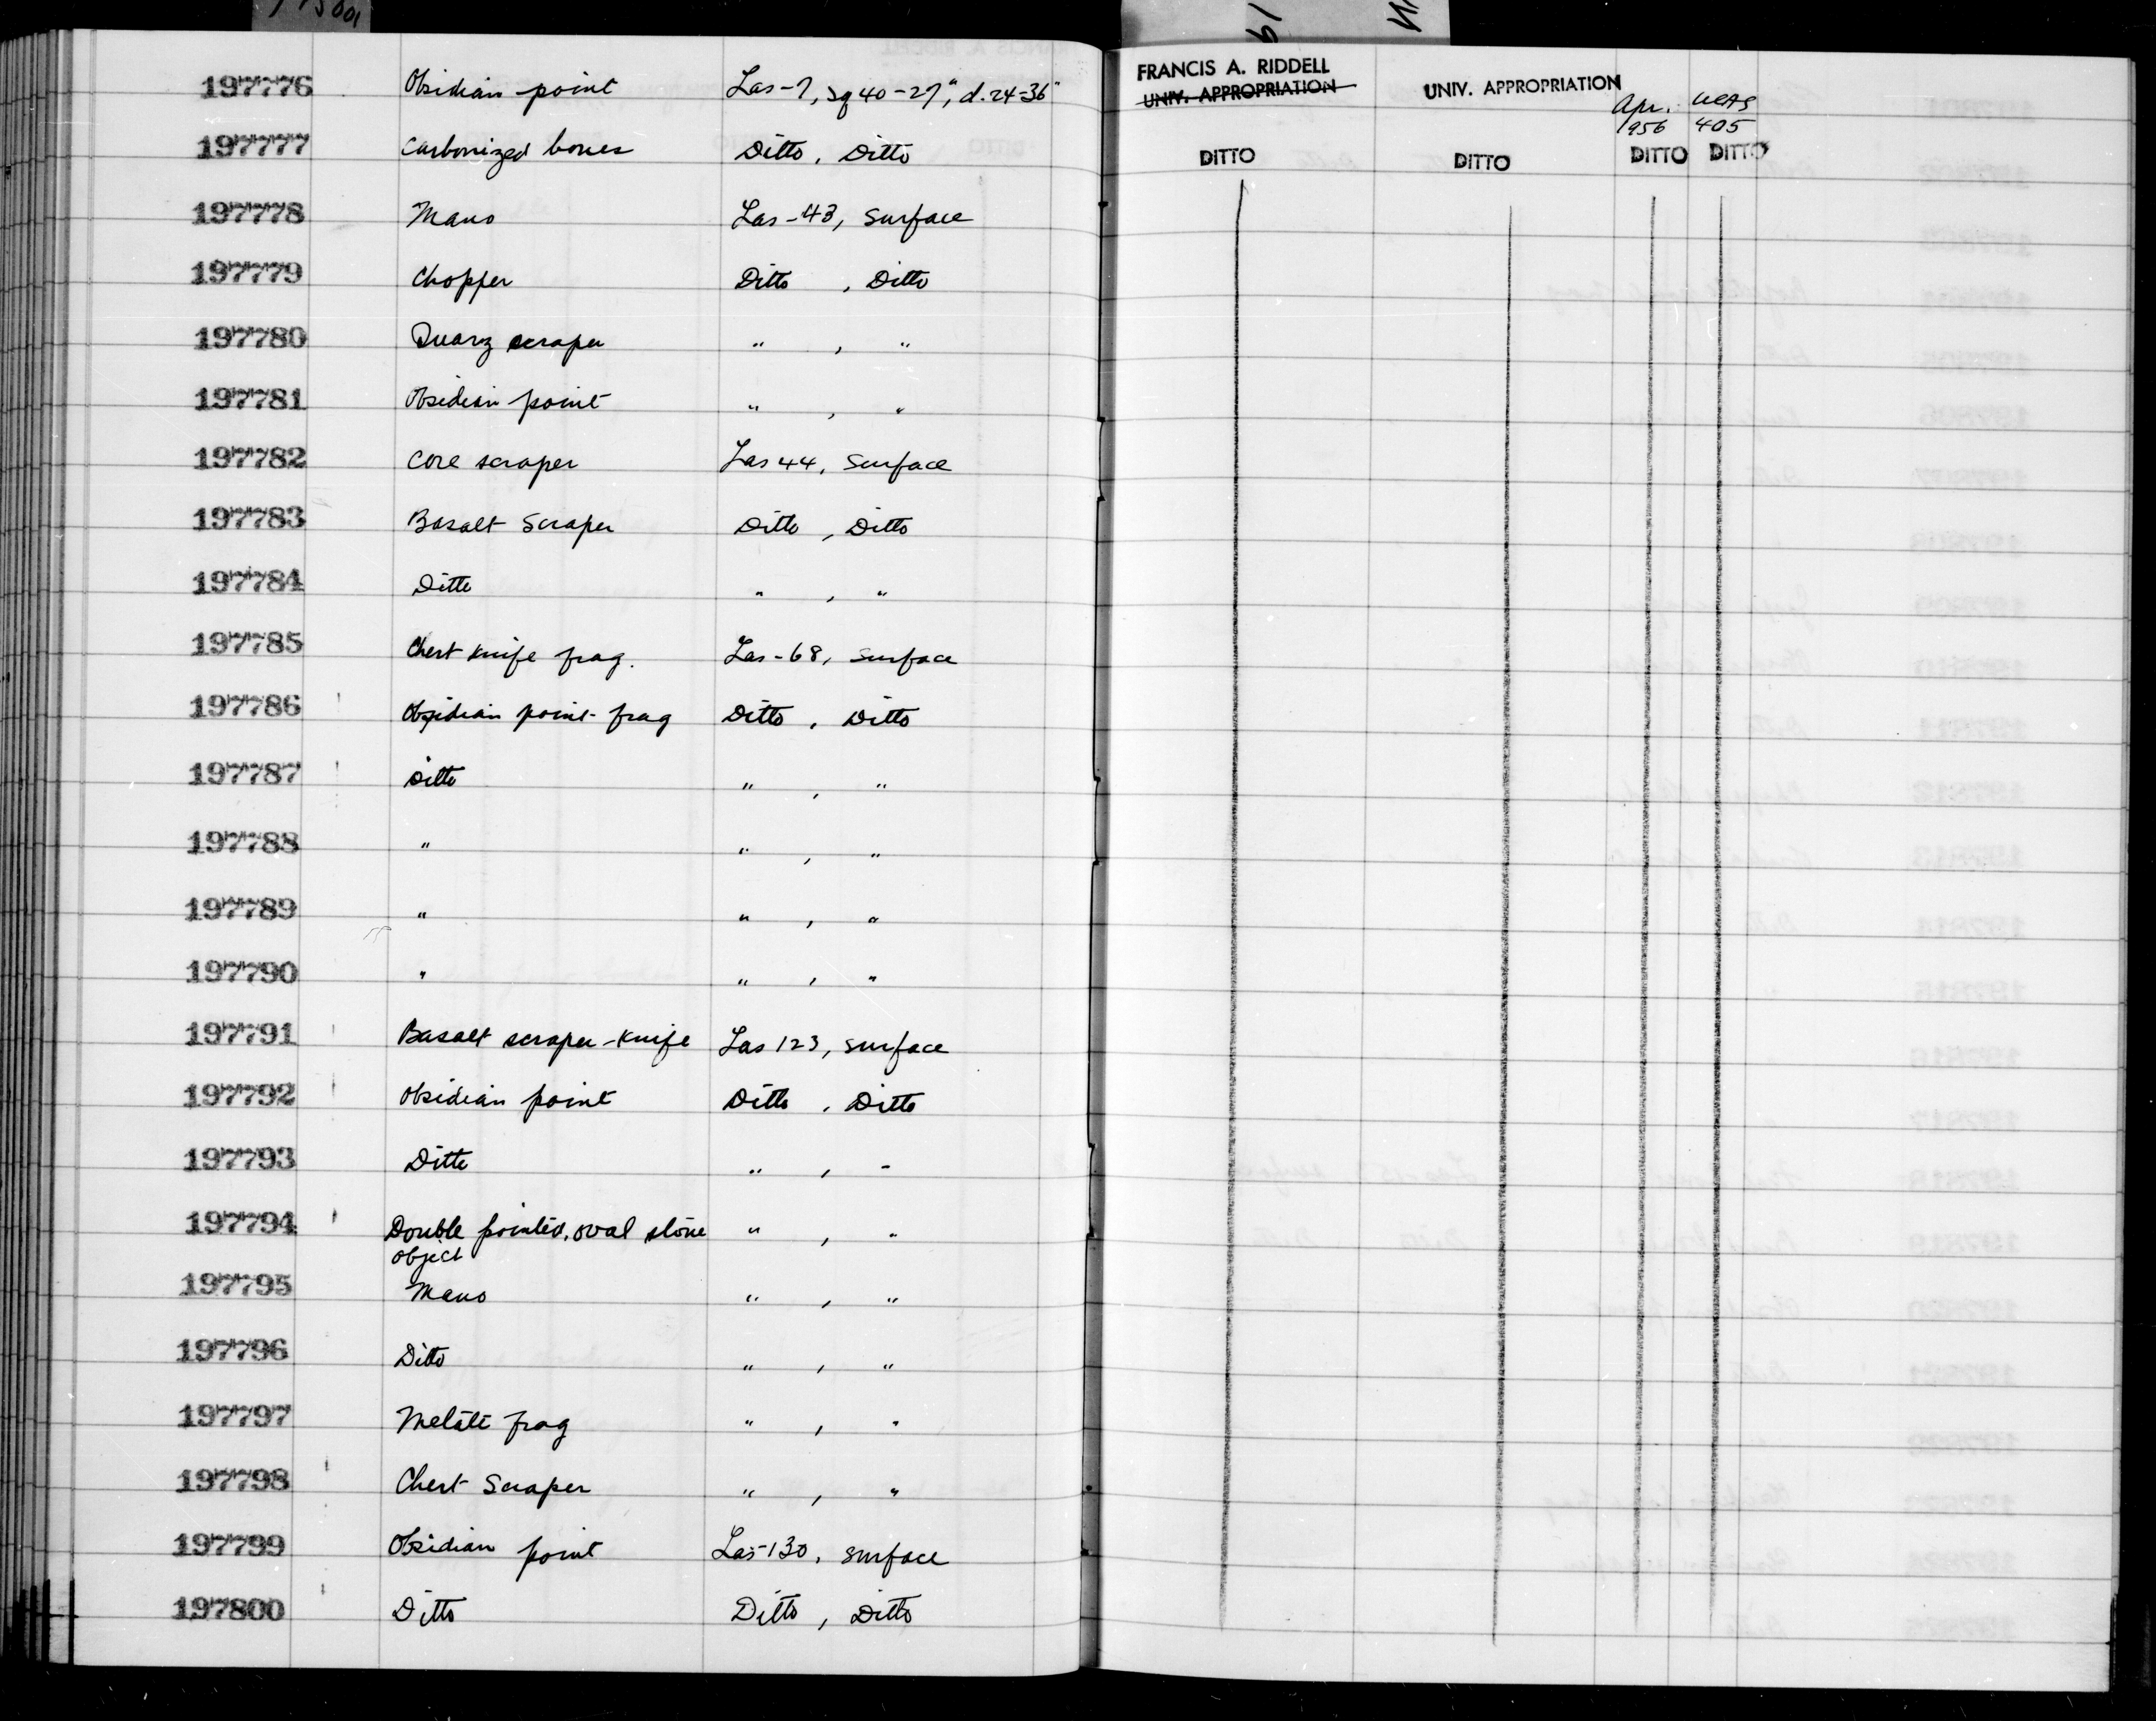 197776 Obsidian point Las-7, Sq 40-27", d. 24-36" FRANCIS A. RIDDELL UNIV. APPROPRIATION UNIV. APPROPRIATION Apr. 1956 UCAS 405
197777 Carbonized bones Ditto, Ditto DITTO DITTO DITTO DITTO
197778 Mano Las-43, Surface
197779 Chopper Ditto , Ditto
197780 Quarz scraper " , "
197781 Obsidian point " , "
197782 Core scraper Las 44, Surface
197783 Basalt Scraper Ditto , Ditto
197784 Ditto " , "
197785 Chert knife frag. Las-68, Surface
197786 Obsidian point frag Ditto , Ditto
197787 Ditto " , "
197788 " " , "
197789 " " , "
197790 " " , "
197791 Basalt scraper-knife Las 123, surface
197792 Obsidian point Ditto , Ditto
197793 Ditto " , "
197794 Double pointed, oval stone " , "
object
197795 Mano " , "
197796 Ditto " , "
197797 Metate frag " , "
197798 Chert Scraper " , "
197799 Obsidian point Las-130, surface
197800 Ditto Ditto , Ditto